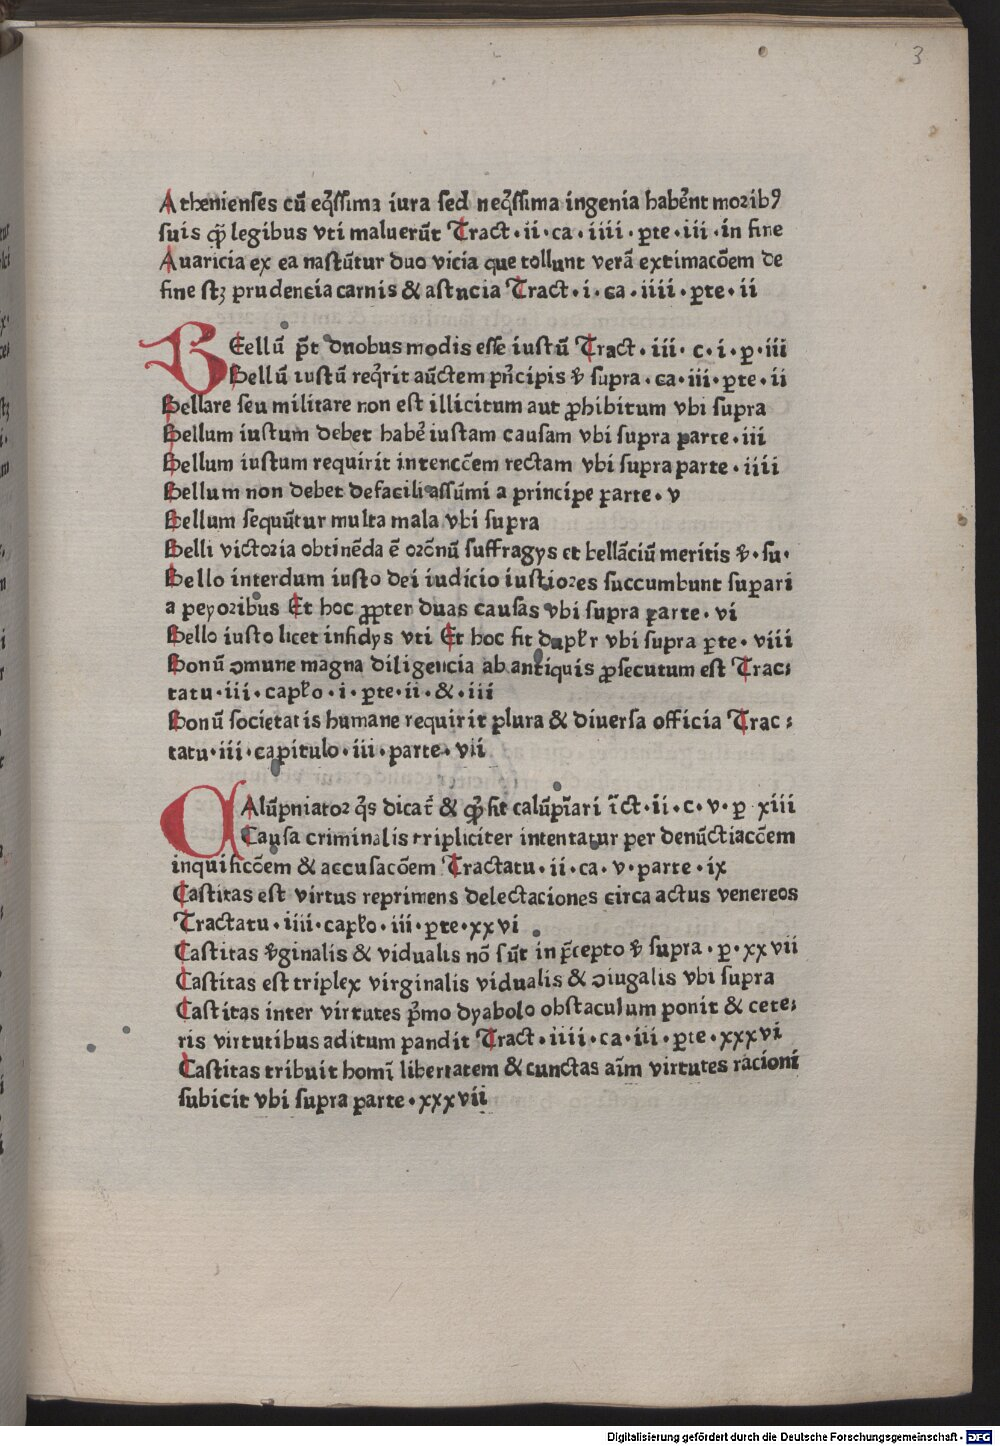 3
Athenienses cū eq̄ssima iura sed neq̄ssima ingenia habēnt moribꝰ
suis ꝙ̄ legibus vti maluerūt Tract·ii·ca·iiii·ꝑte·iii·in fine
Auaricia ex ea nascūtur duo vicia que tollunt verā extimacōem de
fine sꝫ prudencia carnis & astucia Tract·i·ca·iiii·ꝑte·ii
BEellū p̄t duobus modis esse iustū Tract·iii·c·i·p·iii
Bellū iustū req̄rit auctem pn̄cipis vͤ supra·ca·iii·ꝑte·ii
Bellare seu militare non est illicitum aut ꝓhibitum vbi supra
Bellum iustum debet habē iustam causam vbi supra parte·iii
Bellum iustum requirit intenccēm rectam vbi supra parte·iiii
Bellum non debet defacili assūmi a principe parte·v
Bellum sequūtur multa mala vbi supra
Belli victoria obtinēda ē orōnū suffragys et bellāciū meritis vͤ·su·
Bello interdum iusto dei iudicio iustiores succumbunt supari
a peyoribus Et hoc ꝓpter duas causas vbi supra parte·vi
Bello iusto licet insidys vti Et hoc fit duplr vbi supra ꝑte·viii
Bonū ɔmune magna diligencia ab antiquis ꝓsecutum est Trac:
tatu·iii·caplo·i·ꝑte·ii·&·iii
Bonū societatis humane requirit plura & diuersa officia Trac:
tatu·iii·capitulo·iii·parte·vii
CAlūpniator q̄s dicat̄ & ꝙ̄ fit calūpīari īct·ii·c·v·p xiii
Causa criminalis tripliciter intentatur per denūctiaccēm
inquisiccēm & accusacōem Tractatu·ii·ca·v·parte·ix
Castitas est virtus reprimens delectaciones circa actus venereos
Tractatu·iiii·caplo·iii·ꝑte·xxvi
Castitas vͤginalis & vidualis nō sūt in p̄cepto vͤ supra·p·xxvii
Castitas est triplex virginalis vidualis & ɔiugalis vbi supra
Castitas inter virtutes p̄mo dyabolo obstaculum ponit & cete:
ris virtutibus aditum pandit Tract·iiii·ca·iii·ꝑte·xxxvi
Castitas tribuit homī libertatem & cunctas aīm virtutes racioni
subicit vbi supra parte·xxxvii
Digitalisierung gefördert durch die Deutsche Forschungsgemeinschaft - DFG